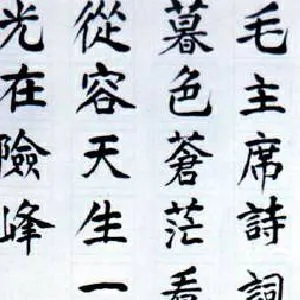 毛主席詩詞
暮色蒼茫看
從容天生一
光在險峰